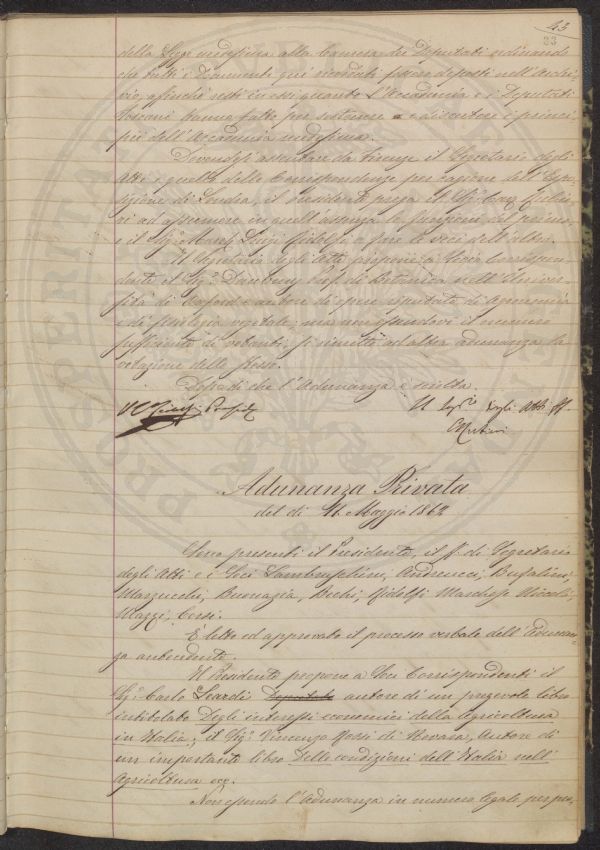 43
83
della Legge medesima alla Camera dei Deputati ordinando
che tutti i Documenti qui ricordati fossero deposti nell'Archi-
vio, affinchè resti in essi quanto l'Accademia e i Deputati
Toscani hanno fatto per sostenere e e diffondere i princi
pii dell'Accademia medesima.
Dovendosi assentare da Firenze il Segretario degli
Atti e quello delle Corrispondenze per cagione dell'Espo-
sizione di Londra, il Presidente prega il Sig.
ad assumere in quell'assenza le funzioni del primo,
e il Sig. March. Luigi Ridolfi a fare le veci dell'altro.
Il Segretario degli Atti propone a Socio Corrispon-
dente il Sig. Daubeny Prof. di Botanica nell'Univer-
sità di Oxford e autore di opere riputate di Agronomia
e di fisiologia vegetale; ma non essendovi il numero
sufficiente di votanti, si rimette ad altra adunanza la
votazione dello stesso.
Dopo di che l'Adunanza è sciolta.
Il Seg.rio degli Atti ff.
Adunanza Privata
del dì 11 Maggio 1862
Sono presenti il Presidente, il f. di Segretario
degli Atti e i Soci Lambruschini, Andreucci, Bufalini,
Marzucchi, Buonazia, Bechi, Ridolfi Marchese Niccolò,
Mazzi, Corsi.
È letto ed approvato il processo verbale dell'Adunan-
za antecedente.
Il Presidente propone a Soci Corrispondenti il
Sig. Carlo Leardi Deputato autore di un pregevole libro
intitolato Degli interessi economici della Agricoltura
in Italia; il Sig. Vincenzo Rossi di Novara, Autore di
un importante libro Delle condizioni dell'Italia nell'
Agricoltura ecc.
Non essendo l'Adunanza in numero legale per pro-